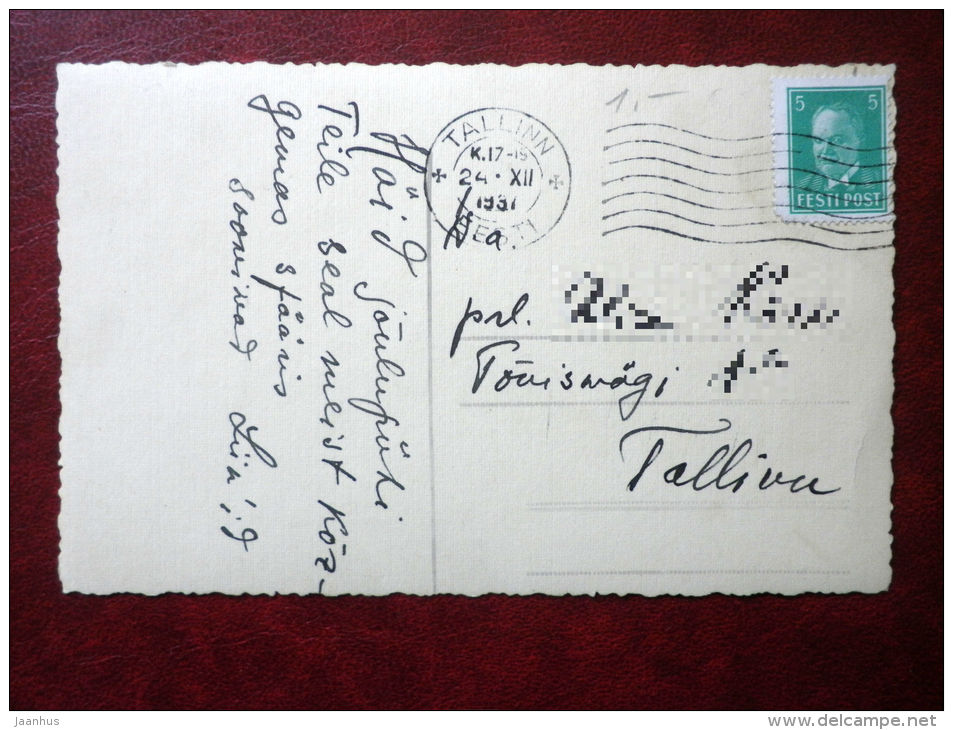 Häid jõulupühi
Teile seal meist kõr-
gemas sfääris
soovivad Lin'id
1.-
TALLINN
K.17-19
24. XII
1937
EESTI
5 5
EESTI POST
prl.
Tõnismägi
Tallinn
jaanhus
www.delcampe.net